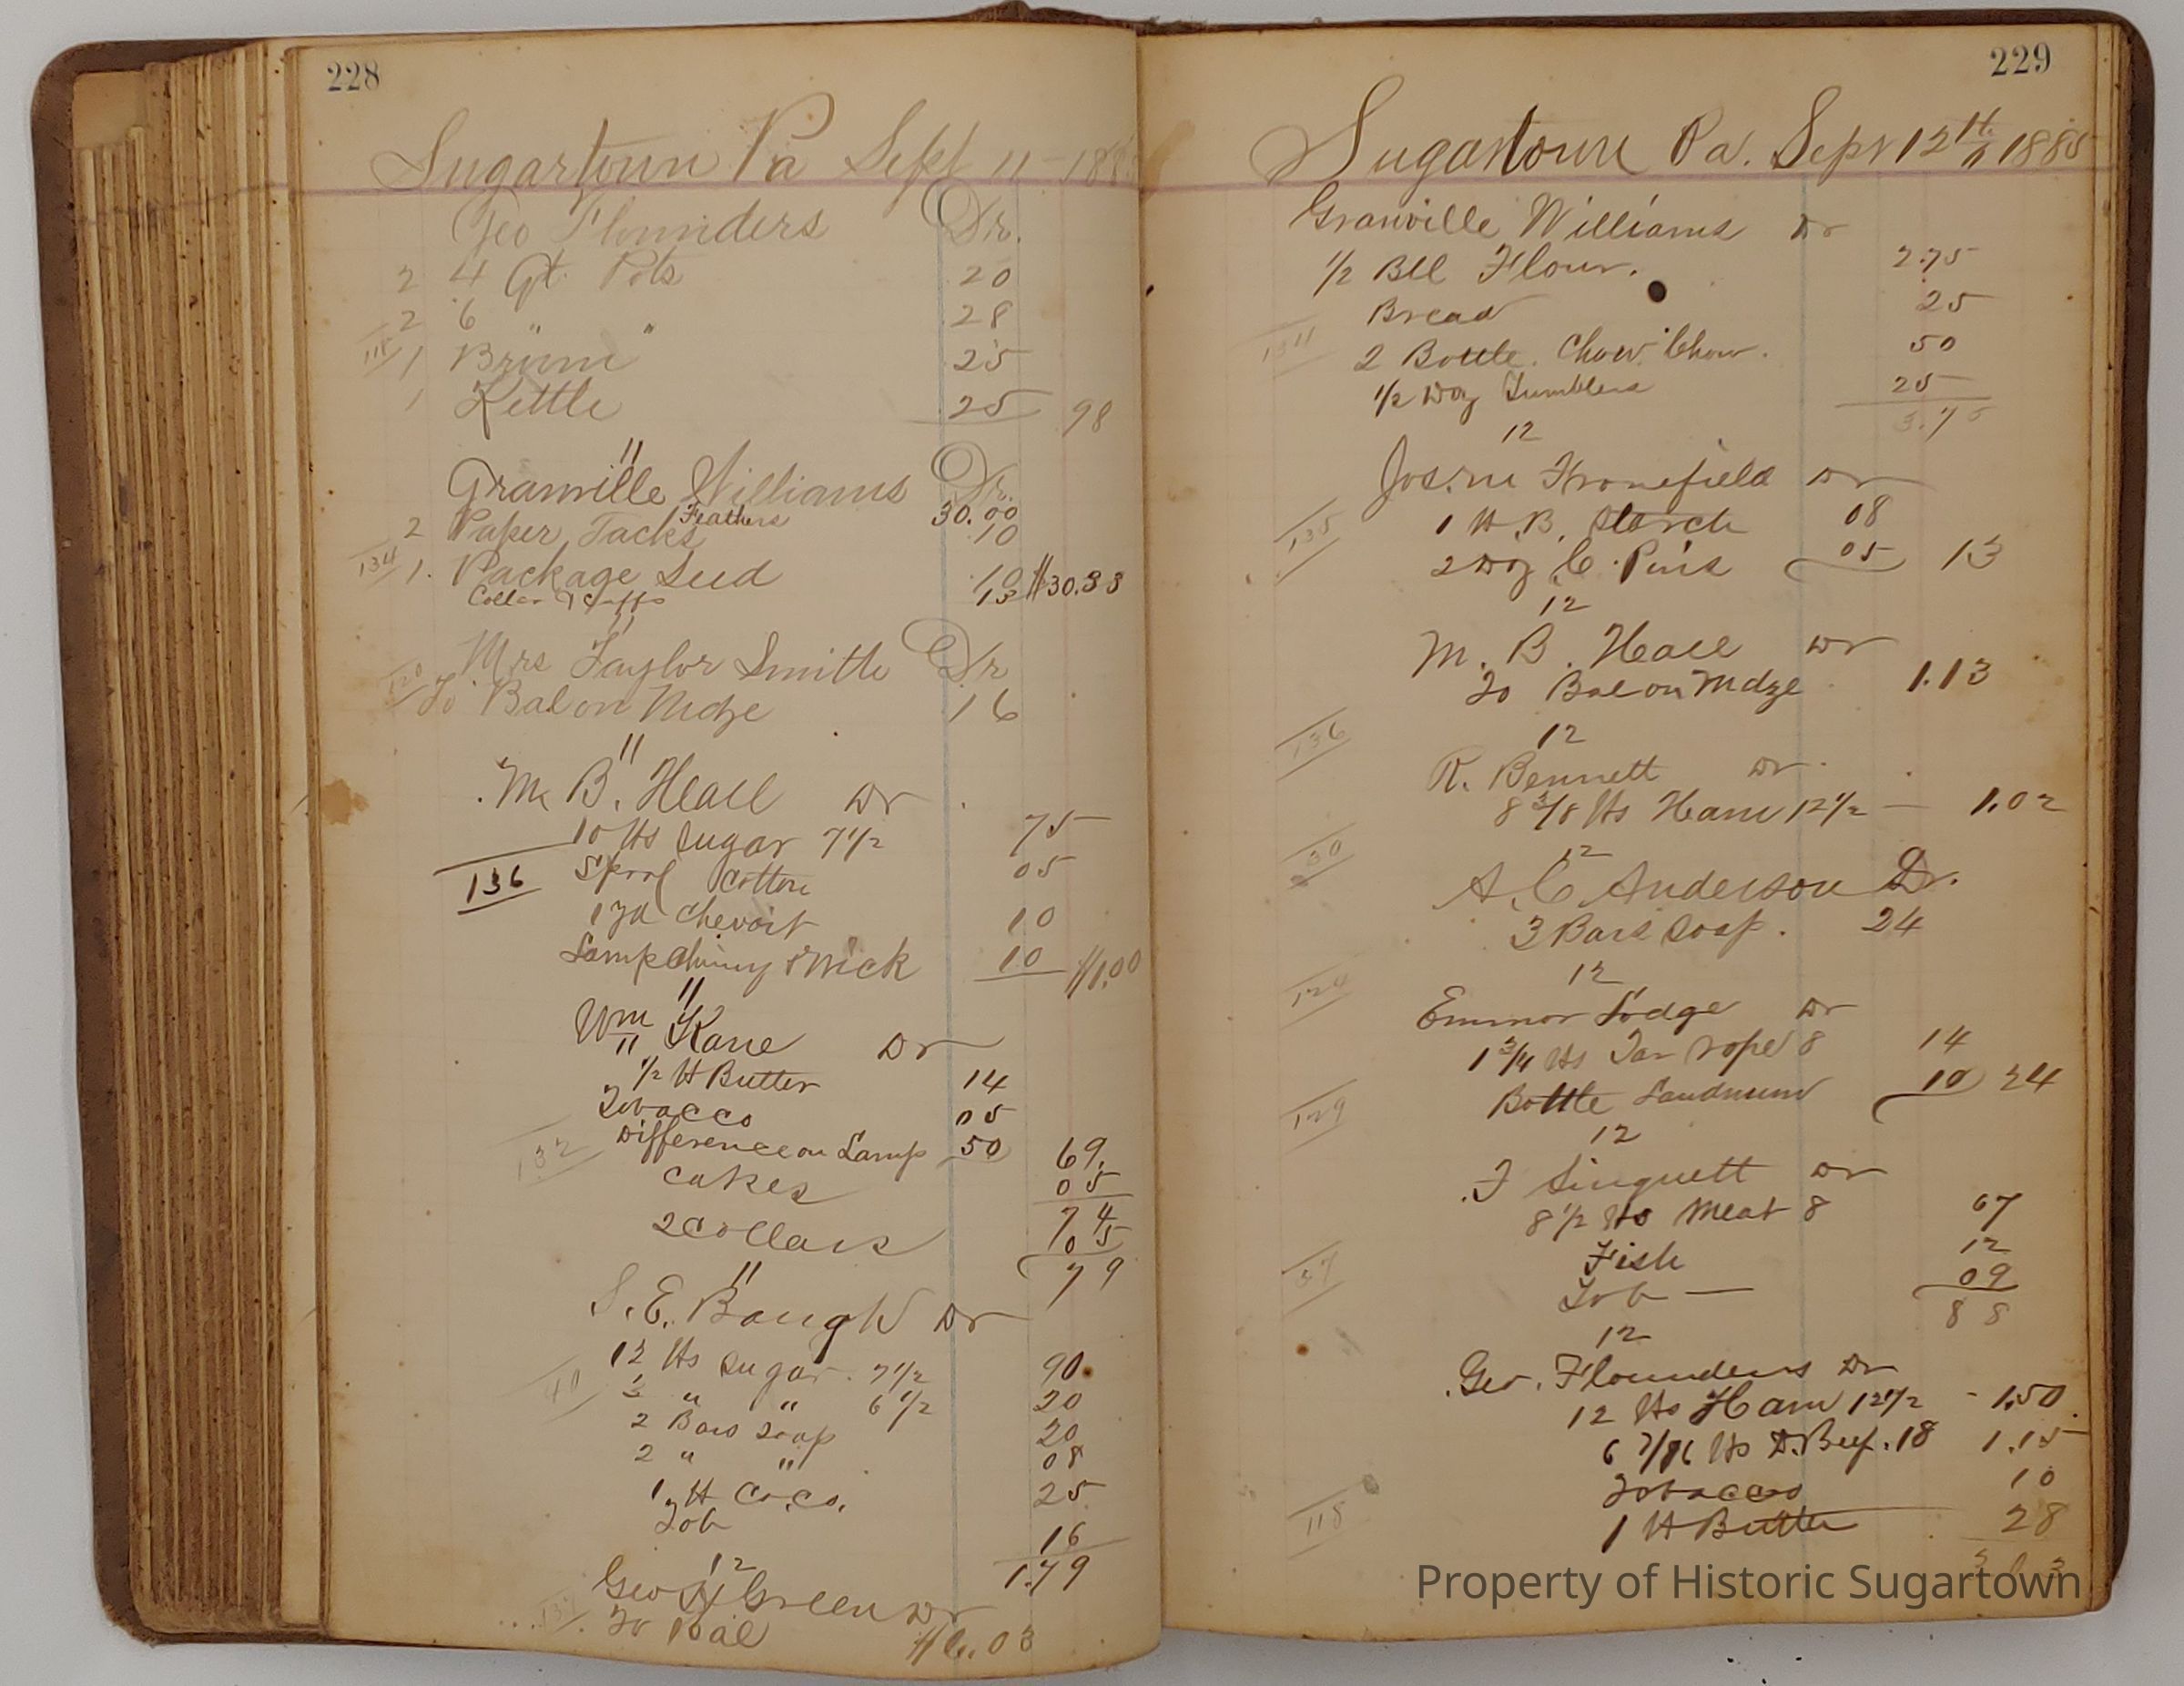 228
Sugartown Pa Sept 11 - 188
Geo Flounders Dr.
2 4 Qt. Pots 20
2 6 " " 28
118 1 Brum 25
1 Kettle 25 98
11
Granville Williams Dr.
Feathers 30.00
2 Paper Tacks 10
134 1. Package Seed 10
Collar & Cuffs 13 $30.33
11
120 Mrs Taylor Smith Dr
To Bal on Mdze 16
11
M. B. Heall Dr
10 lbs Sugar 7 1/2 75
136 Spool Cotton 05
1 yd Cheviort 10
Lamp Chimy & Wick 10 $1.00
11
Wm Kane Dr
"
1/2 lb Butter 14
Tobacco 05
132 Difference on Lamp 50 69.
Cakes 05
74
2 Collars 05
79
11
S. E. Baugh Dr
12 lbs Sugar. 7 1/2 90
40 3 " " 6 1/2 20
2 Bars Soap 20
2 " " 08
1 lb Co.co. 25
Tob 16
1.79
12
Geo Green Dr
To Bal $6.03
229
Sugartown Pa. Sept 12th 1885
Granville Williams Dr
1/2 Bll Flour. 2.75
Bread 25
134 2 Bottle. Chow Chow. 50
1/2 Doz Tumblers 25
3.75
12
Jos. m Fronefield Dr
135 1 lb B. Starch 08
2 Doz C. Pins 05 13
12
M. B. Heall Dr
To Bal on Mdze 1.13
136
12
R. Bennett Dr.
8 3/8 lbs Ham 12 1/2 — 1.02
30
12
A. C. Anderson Dr.
3 Bars Soap. 24
120
12
Emmor Lodge Dr
1 3/4 lbs Tar rope 8 14
129 Bottle Laudnum 10 24
12
F Singuett Dr
8 1/2 lbs Meat 8 67
37 Fish 12
Tob — 09
88
12
Geo. Flounders Dr
12 lbs Ham 12 1/2 - 1.50
6 lbs D. Beef. 18 1.15
Tobacco 10
118 1 lb Butter 28
Property of Historic Sugartown